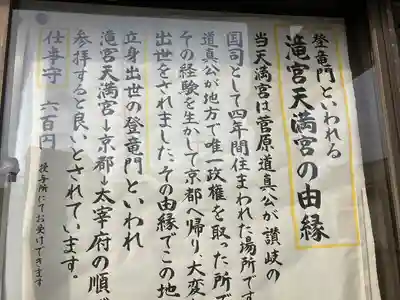 登竜門といわれる
滝宮天満宮の由縁
当天満宮は菅原道真公が讃岐の
国司として四年間住まわれた場所です
道真公が地方で唯一政権を取った所で
その経験を生かして京都へ帰り、大変
出世をされました。その由縁でこの地
立身出世の登竜門といわれ
滝宮天満宮→京都→太宰府の順
参拝すると良いとされています。
仕事守 六百円
授与所にてお受けできます